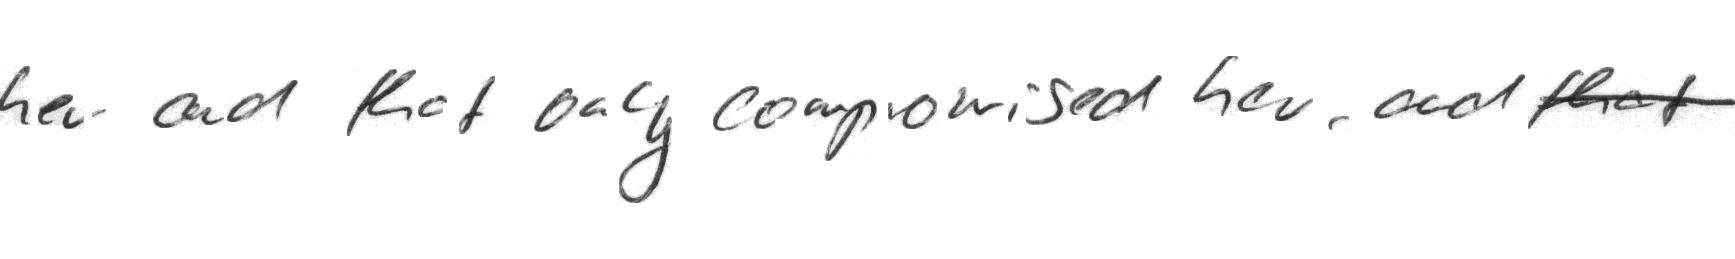 her and that only compromised her, and that